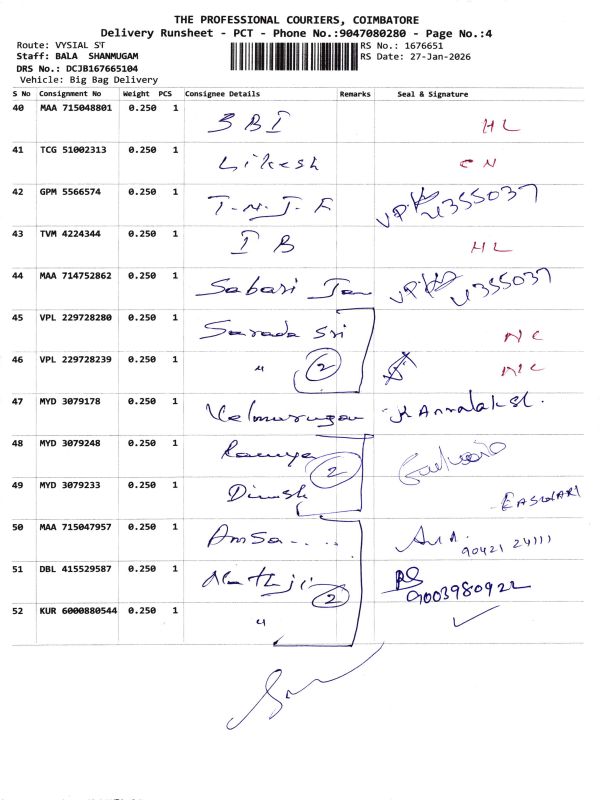 THE PROFESSIONAL COURIERS, COIMBATORE
Delivery Runsheet - PCT - Phone No.:9047080280 - Page No.:4
Route: VYSIAL ST RS No.: 1676651
Staff: BALA SHANMUGAM RS Date: 27-Jan-2026
DRS No.: DCJB167665104
Vehicle: Big Bag Delivery
S No Consignment No Weight PCS Consignee Details Remarks Seal & Signature
40 MAA 715048801 0.250 1 SBI HL
41 TCG 51002313 0.250 1 Likesh CN
42 GPM 5566574 0.250 1 T.N.J.F 4355037
43 TVM 4224344 0.250 1 I B HL
44 MAA 714752862 0.250 1 Sabari 4355037
45 VPL 229728280 0.250 1 Sarada Sri NC
46 VPL 229728239 0.250 1 〃 2 NC
47 MYD 3079178 0.250 1 Velmurugan
48 MYD 3079248 0.250 1 Ramya 2
49 MYD 3079233 0.250 1 Dinesh EASWARI
50 MAA 715047957 0.250 1 Amsa .... 90421 24111
51 DBL 415529587 0.250 1 2 9003980922
52 KUR 6000880544 0.250 1 〃